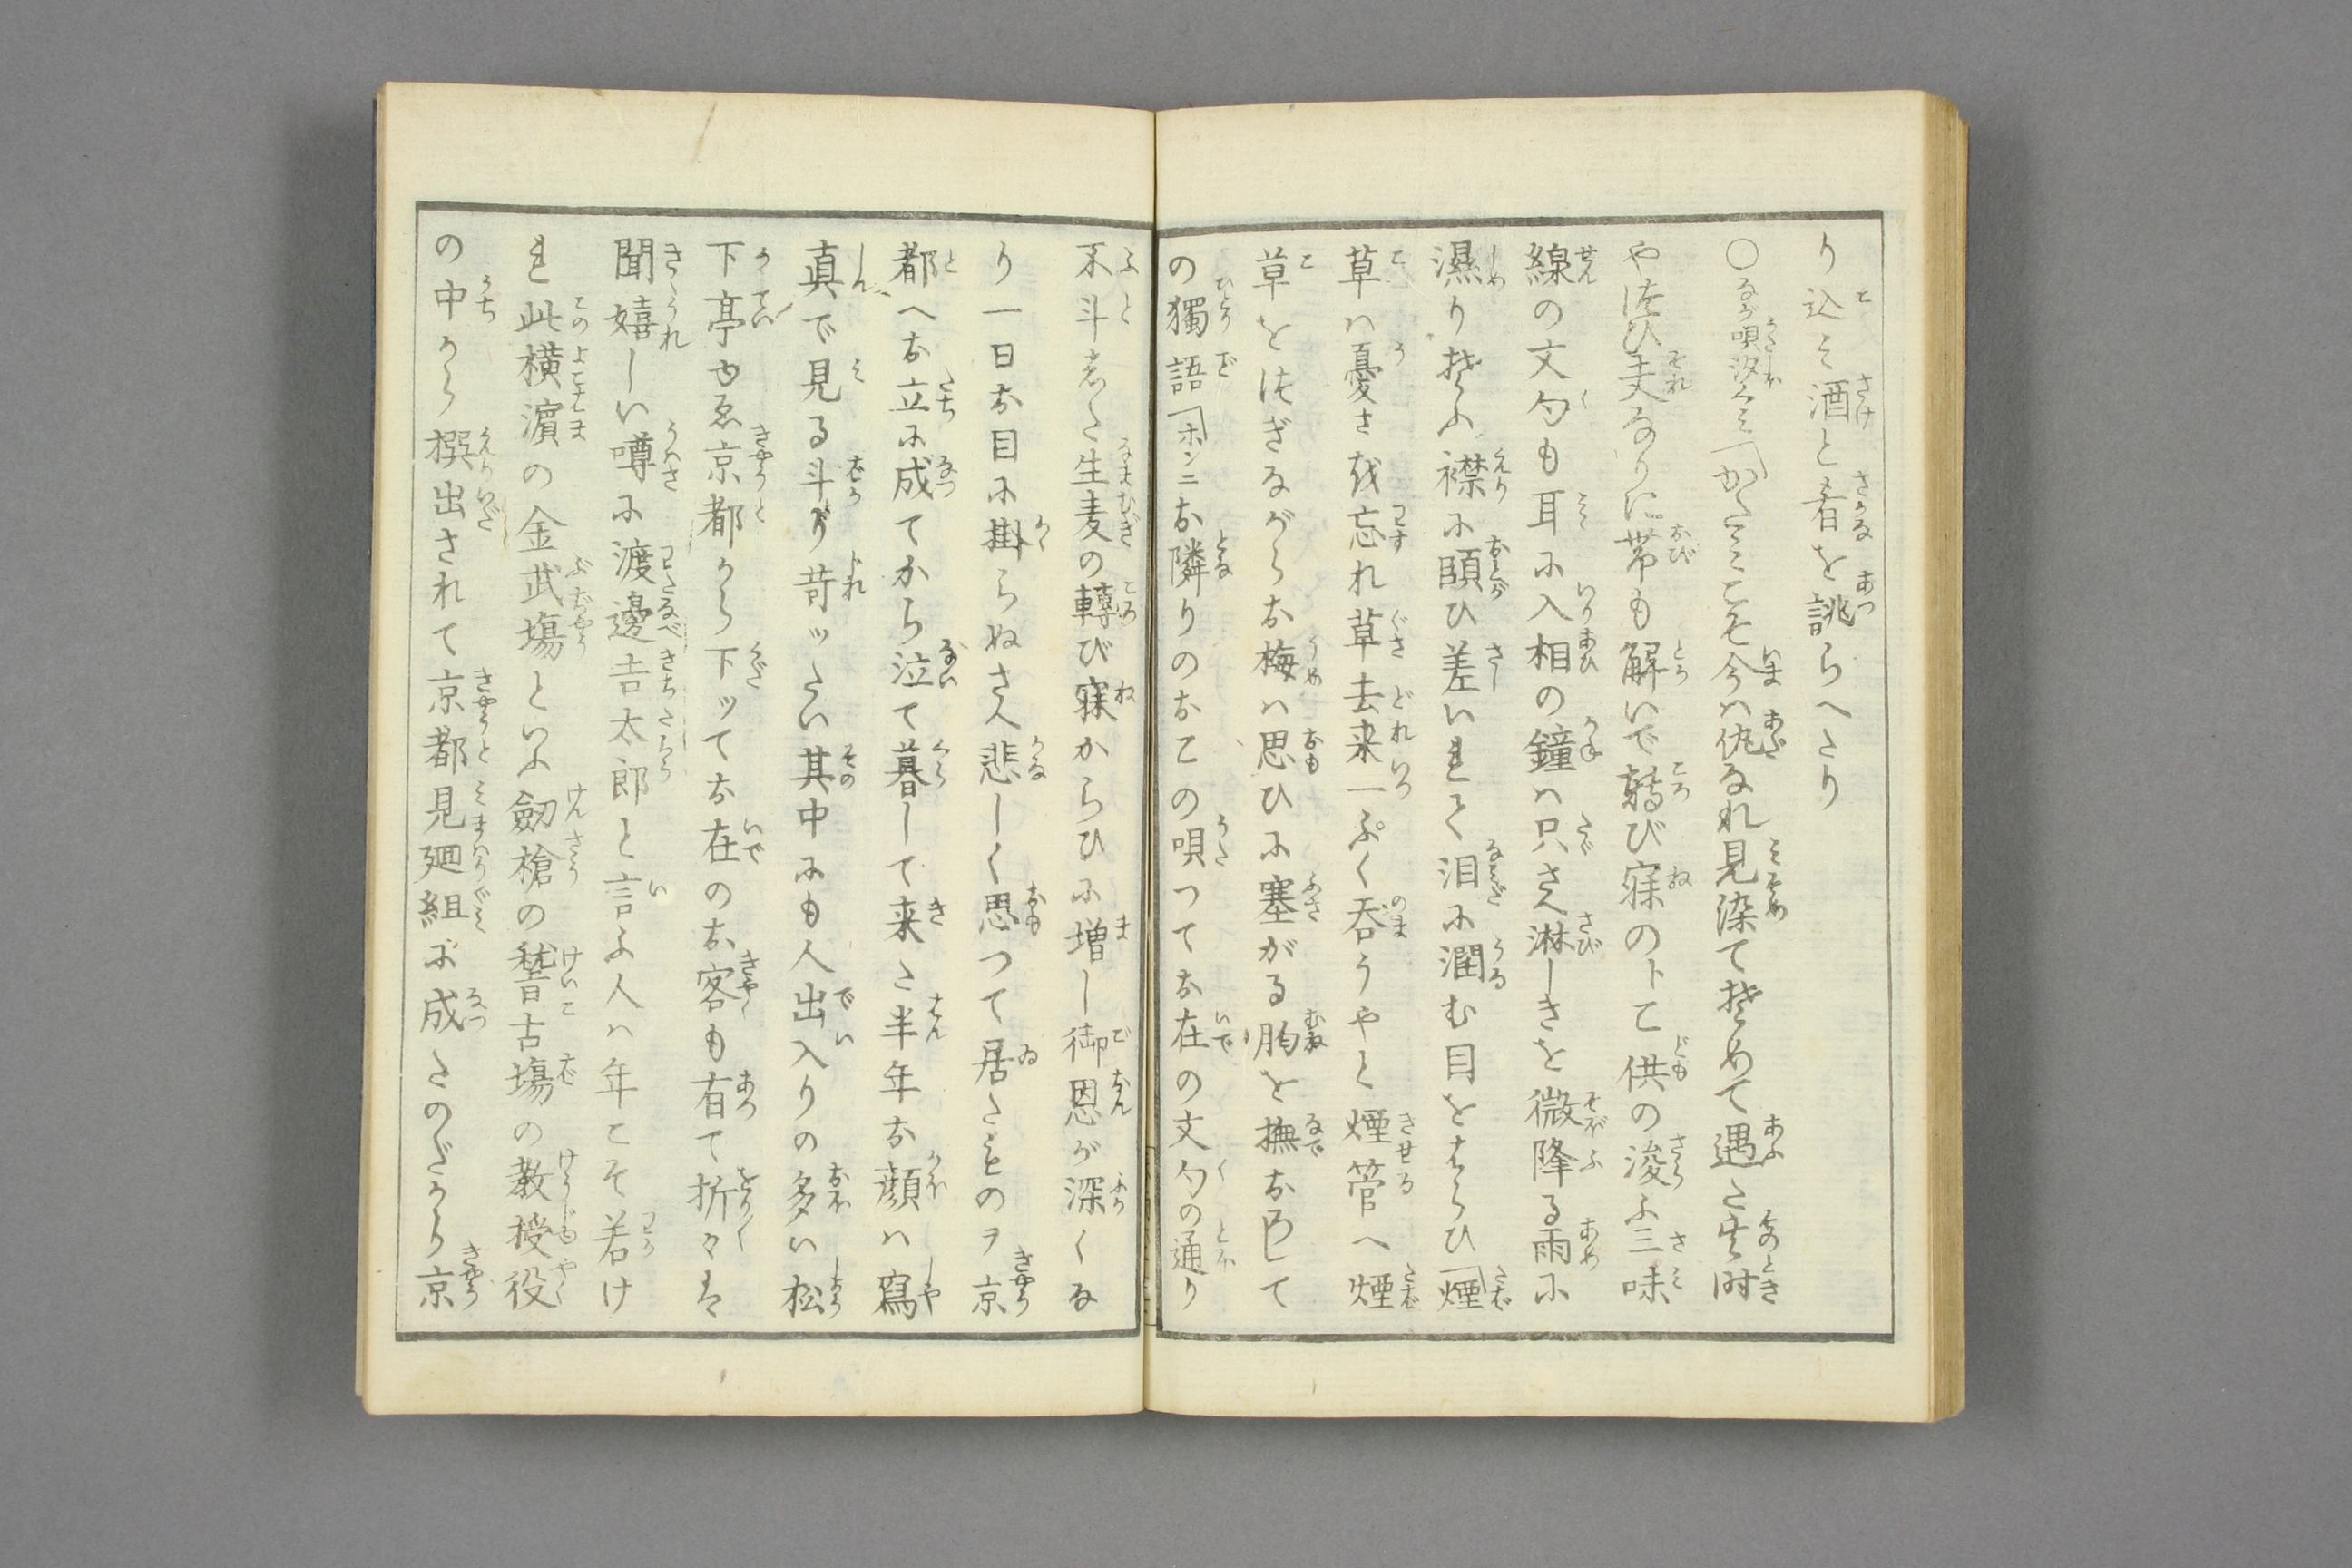 り込ミ酒と肴を誂らへたり
○ながら唄汐くミ「かたミこそ今ハ仇なれ見染て楚めて遇た其時
や徒ひ夫なりに帯も解いで轉び寐のトこ供の浚ふ三味
線の文句も耳に入相の鐘ハ只さへ淋しきを微降る雨に
濕り楚ふ襟に頤ひ差いれて泪に潤む目をはらひ「煙
草ハ憂さを忘れ草去来一ぷく呑うやと煙管へ煙
草をつぎながらお梅ハ思ひに塞がる胸を撫おろして
の獨語「ホンニお隣りのおこの唄つてお在の文句の通り
不斗志た生麦の轉び寐からひに増し御恩が深くな
り一日お目に掛らぬさへ悲しく思つて居たものヲ京
都へお立に成てから泣て暮して来た半年お顔ハ寫
真で見る斗り苛ツたい其中にも人出入りの多い松
下亭ゆゑ京都から下ツてお在のお客も有て折々は
聞嬉しい噂に渡邊吉太郎と言ふ人ハ年こそ若け
れ此横濵の金武塲といふ劔槍の稽古塲の教授役
の中から撰出されて京都見廻組に成たのだから京